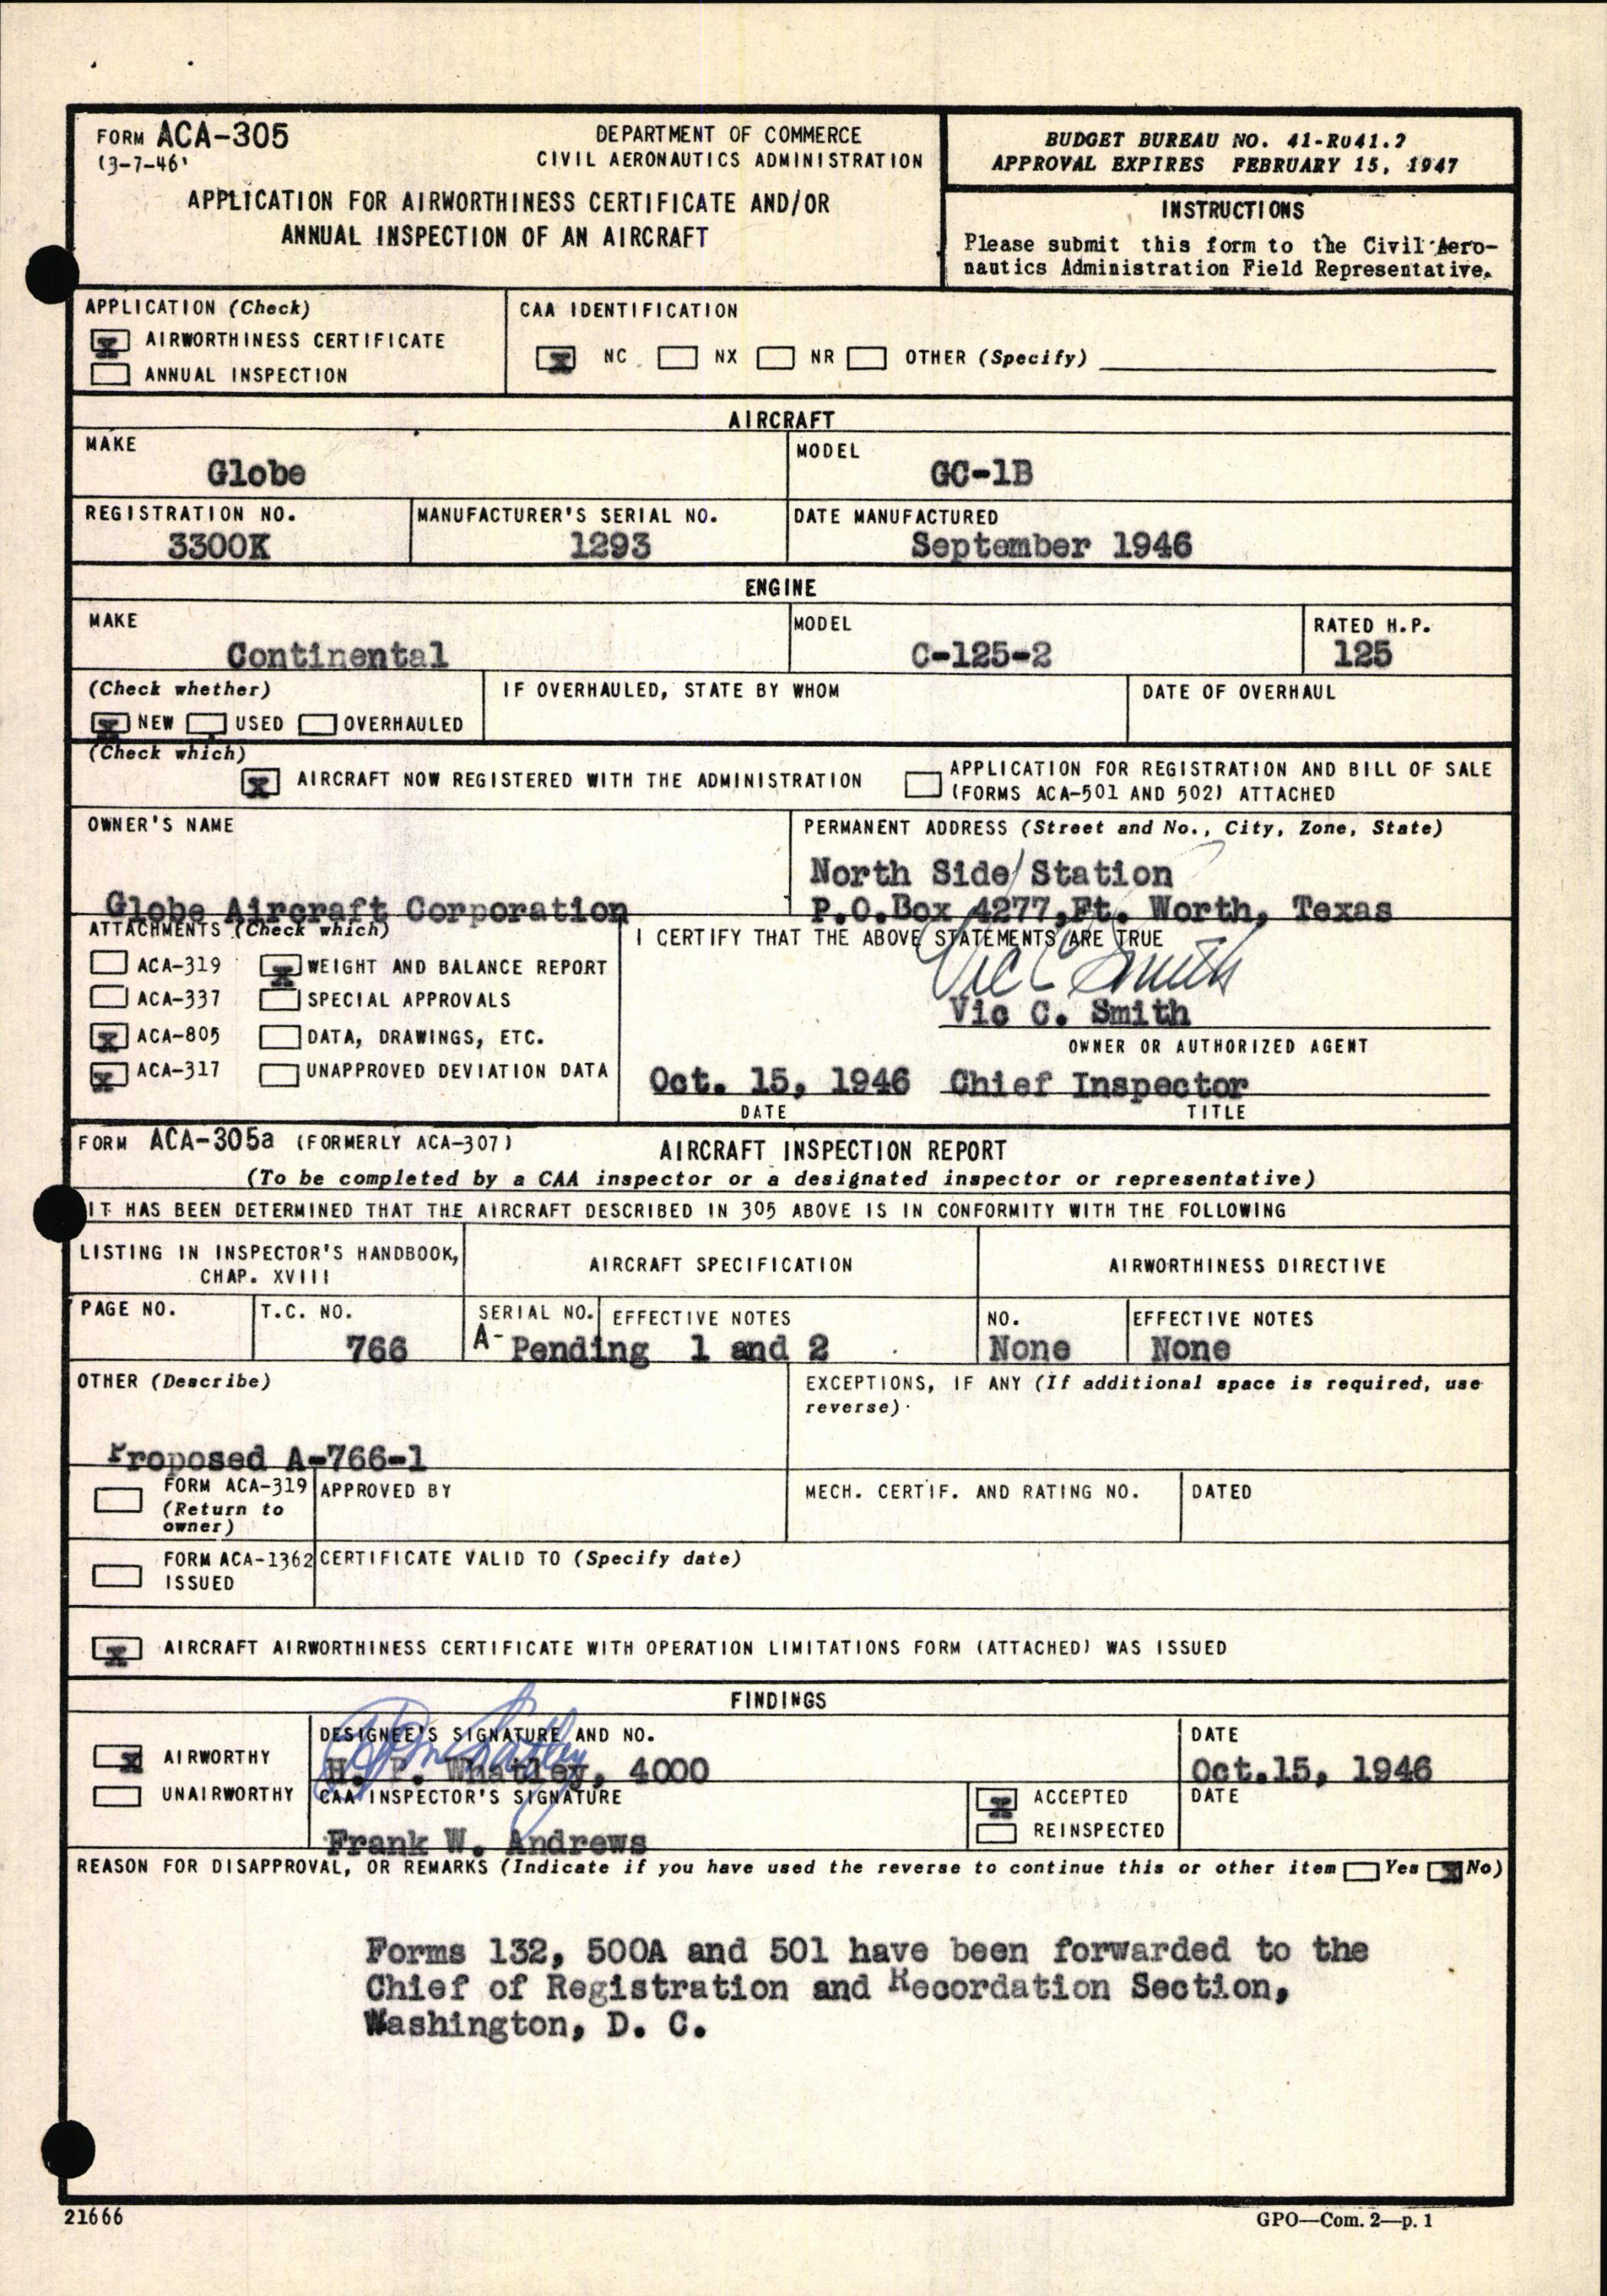 FORM ACA-305
(3-7-46)
DEPARTMENT OF COMMERCE
CIVIL AERONAUTICS ADMINISTRATION
APPLICATION FOR AIRWORTHINESS CERTIFICATE AND/OR
ANNUAL INSPECTION OF AN AIRCRAFT
BUDGET BUREAU NO. 41-R041.2
APPROVAL EXPIRES FEBRUARY 15, 1947
INSTRUCTIONS
Please submit this form to the Civil Aero-
nautics Administration Field Representative.
APPLICATION (Check)
X AIRWORTHINESS CERTIFICATE
ANNUAL INSPECTION
CAA IDENTIFICATION
X NC NX NR OTHER (Specify)
AIRCRAFT
MAKE
Globe
MODEL
GC-1B
REGISTRATION NO.
3300K
MANUFACTURER'S SERIAL NO.
1293
DATE MANUFACTURED
September 1946
ENGINE
MAKE
Continental
MODEL
C-125-2
RATED H.P.
125
(Check whether)
X NEW USED OVERHAULED
IF OVERHAULED, STATE BY WHOM
DATE OF OVERHAUL
(Check which)
X AIRCRAFT NOW REGISTERED WITH THE ADMINISTRATION
APPLICATION FOR REGISTRATION AND BILL OF SALE
(FORMS ACA-501 AND 502) ATTACHED
OWNER'S NAME
Globe Aircraft Corporation
PERMANENT ADDRESS (Street and No., City, Zone, State)
North Side Station
P.O.Box 4277, Ft. Worth, Texas
ATTACHMENTS (Check which)
ACA-319 X WEIGHT AND BALANCE REPORT
ACA-337 SPECIAL APPROVALS
X ACA-805 DATA, DRAWINGS, ETC.
X ACA-317 UNAPPROVED DEVIATION DATA
I CERTIFY THAT THE ABOVE STATEMENTS ARE TRUE
Vic C Smith
Vic C. Smith
OWNER OR AUTHORIZED AGENT
Oct. 15, 1946 Chief Inspector
DATE TITLE
FORM ACA-305a (FORMERLY ACA-307)
AIRCRAFT INSPECTION REPORT
(To be completed by a CAA inspector or a designated inspector or representative)
IT HAS BEEN DETERMINED THAT THE AIRCRAFT DESCRIBED IN 305 ABOVE IS IN CONFORMITY WITH THE FOLLOWING
LISTING IN INSPECTOR'S HANDBOOK,
CHAP. XVIII
AIRCRAFT SPECIFICATION
AIRWORTHINESS DIRECTIVE
PAGE NO.
T.C. NO.
766
SERIAL NO.
A- Pending
EFFECTIVE NOTES
1 and 2
NO.
None
EFFECTIVE NOTES
None
OTHER (Describe)
Proposed A-766-1
EXCEPTIONS, IF ANY (If additional space is required, use
reverse)
FORM ACA-319
(Return to
owner)
APPROVED BY
MECH. CERTIF. AND RATING NO.
DATED
FORM ACA-1362
ISSUED
CERTIFICATE VALID TO (Specify date)
X AIRCRAFT AIRWORTHINESS CERTIFICATE WITH OPERATION LIMITATIONS FORM (ATTACHED) WAS ISSUED
FINDINGS
X AIRWORTHY
UNAIRWORTHY
DESIGNEE'S SIGNATURE AND NO.
HPWhatley
H. P. Whatley, 4000
DATE
Oct.15, 1946
CAA INSPECTOR'S SIGNATURE
Frank W. Andrews
X ACCEPTED
REINSPECTED
DATE
REASON FOR DISAPPROVAL, OR REMARKS (Indicate if you have used the reverse to continue this or other item Yes X No)
Forms 132, 500A and 501 have been forwarded to the
Chief of Registration and Recordation Section,
Washington, D. C.
21666
GPO—Com. 2—p. 1